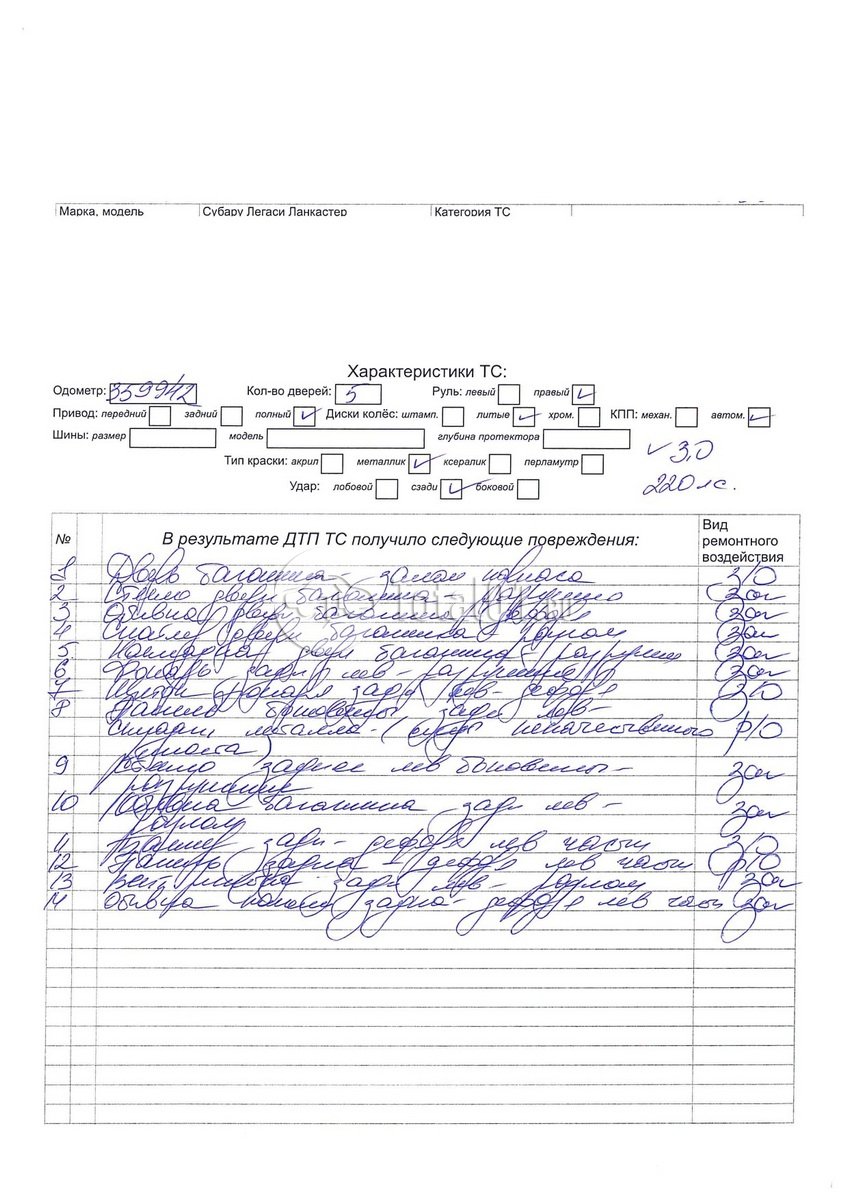 Марка, модель Субару Легаси Ланкастер Категория ТС
Характеристики ТС:
Одометр: 359942 Кол-во дверей: 5 Руль: левый правый ✓
Привод: передний задний полный ✓ Диски колёс: штамп. литые ✓ хром. КПП: механ. автом. ✓
Шины: размер модель глубина протектора
✓ 3,0
Тип краски: акрил металлик ✓ ксералик перламутр
220 лс.
Удар: лобовой сзади ✓ боковой
№ В результате ДТП ТС получило следующие повреждения: Вид ремонтного воздействия
1 Дверь багажника - залом каркаса з/о
2 Стекло двери багажника - разрушено зам
3 Обивка двери багажника зам
4 двери багажника - разлом зам
5. двери багажника зам
6 Фонарь задн лев - разрушение зам
7 фонаря задн лев - з/о
8 Панель боковины задн лев -
металла - (следы некачественного р/о
ремонта)
9 Стекло заднее лев боковины - зам
разрушение
10 Обивка багажника задн лев - зам
разлом
11 Бампер задн - лев части з/о
12 Панель задка - лев части р/о
13 задн лев - разлом зам
14 Обивка панели задка - лев части зам